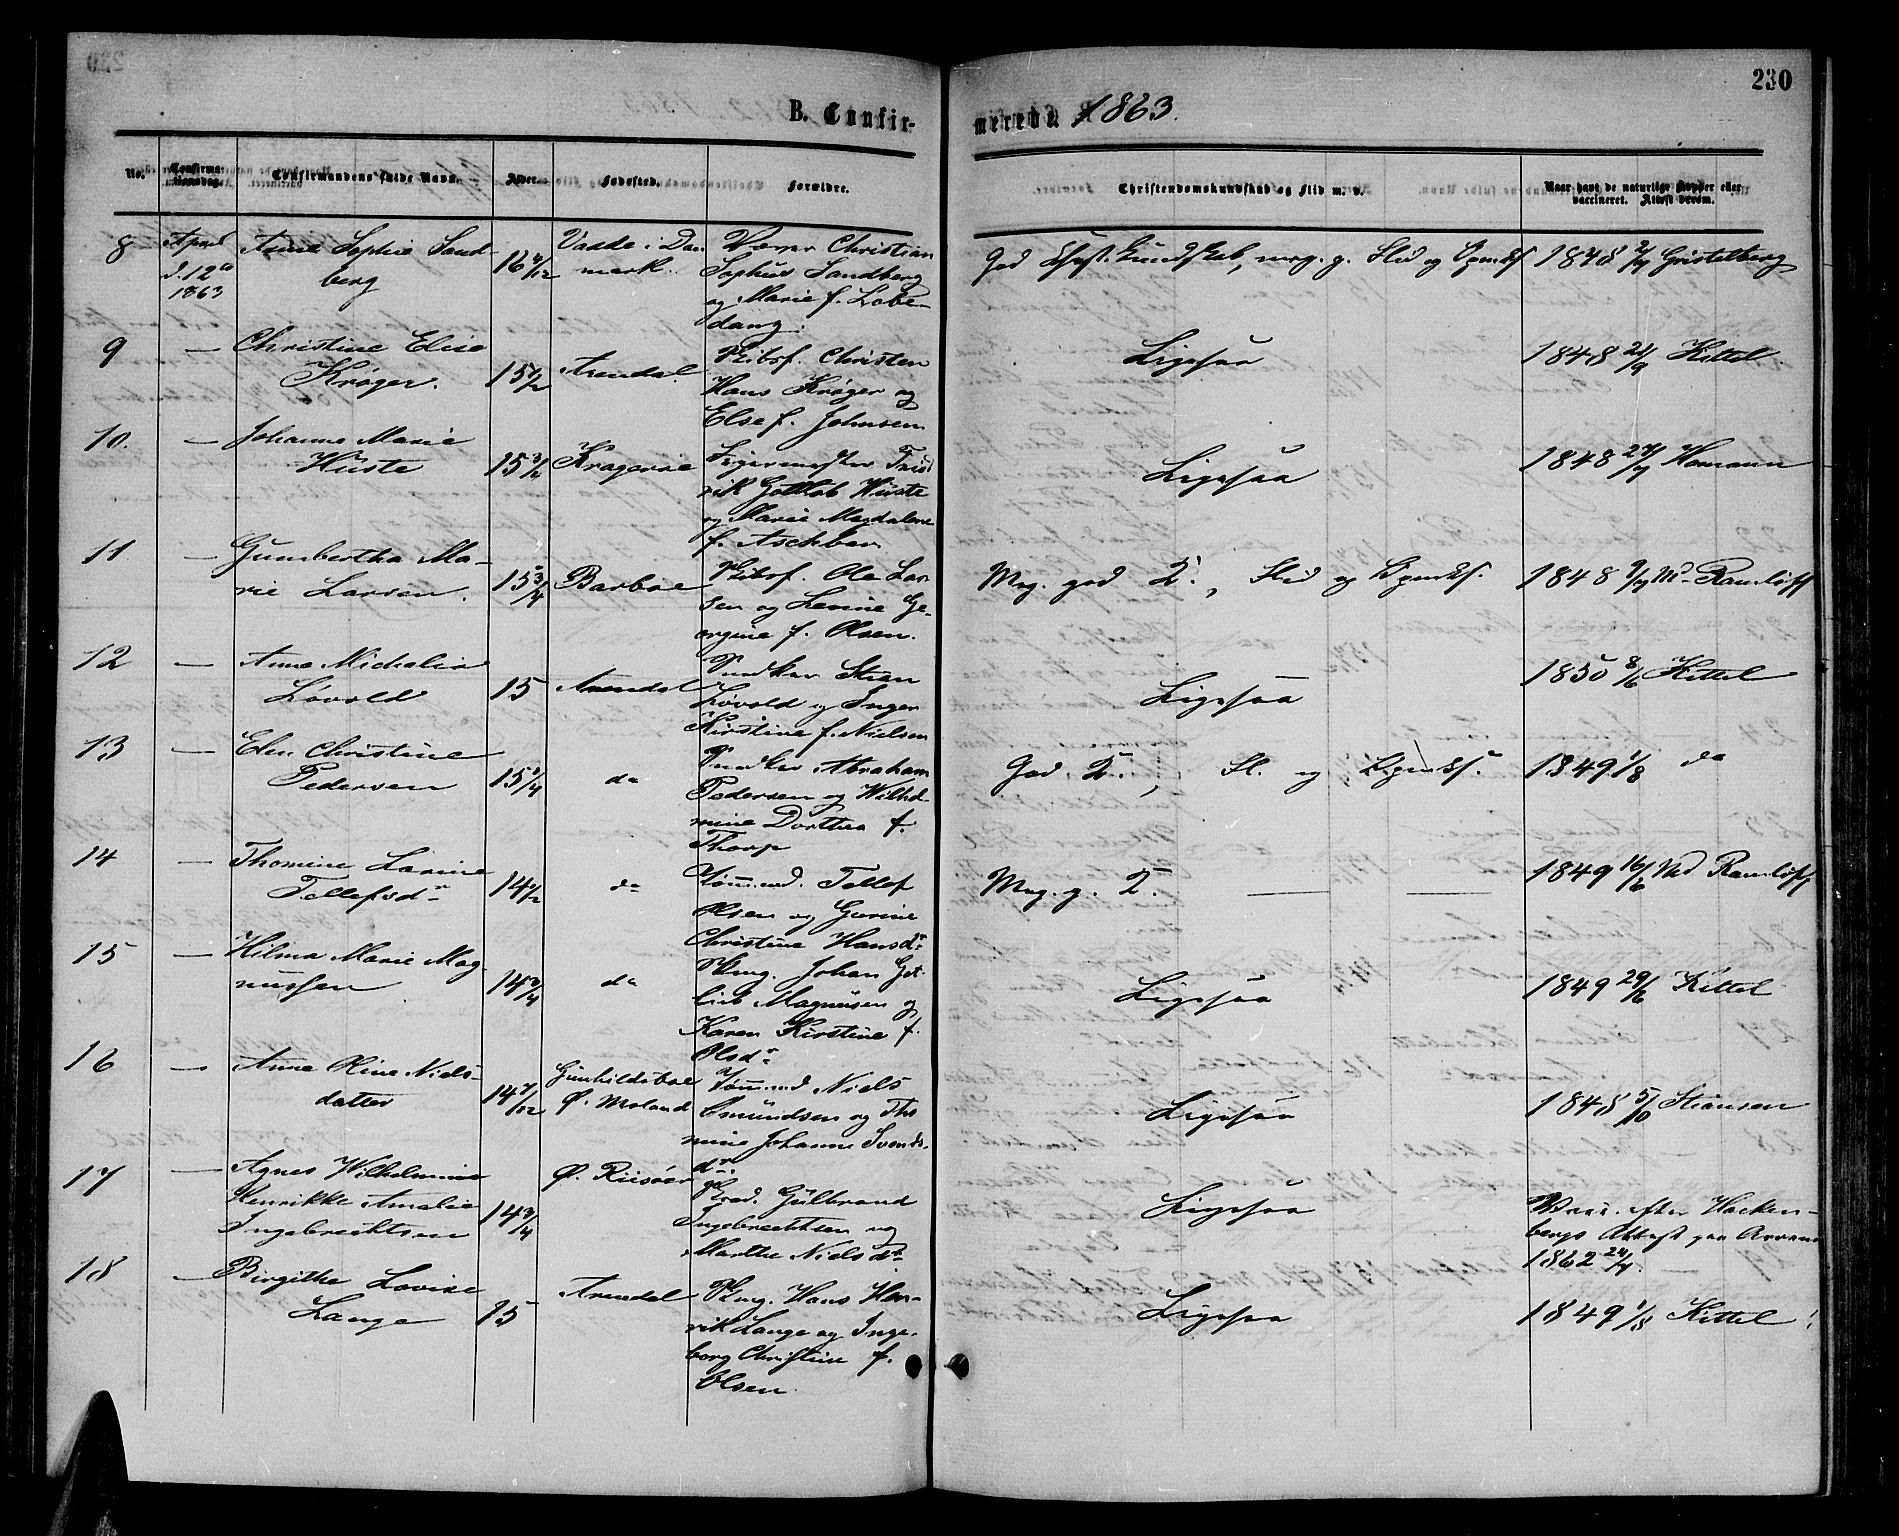 230
B. Confir-
merede 1863.
No.
Confirma-
tionsdag.
Confirmandens fulde Navn.
Alder.
Fødested.
Forældre.
Christendomskundskab og Flid m. v.
Naar havt de naturlige Kopper eller
vaccineret. Attest derom.
8 April Anne Sophie Sand-
d. 12te berg
1863
16 4/12
i Dan-
mark.
Christian
Sophus Sandberg
og Marie f. Lobe-
danz.
God Chr. Kundskab, meg. g. Flid og
1848 2/9
9 — Christine Elise
Krøger.
15 1/2
Arendal.
Skibsf. Christen
Hans Krøger og
Else f. Johnsen
Ligesaa
1848 21/9 Kittel
10. — Johanne Marie
Wüste
15 1/2
Kragerøe
Fried-
rik Gottlob Wüste
og Marie Magdalene
f. Aschber
Ligesaa
1848 Homann
11 — Gumbertha Ma-
rie Larsen.
15 3/4
Barboe
Skibsf. Ole Lar-
sen og Levine Ge-
orgine f. Olsen.
Meg. god K., Flid og
1848 Md. Ramløff
12 — Anne Michalia
Løvold
15
Arendal
Snedker Stian
Løvold og Inger
Kirstine f. Nielsen
Ligesaa
1850 8/6 Kittel
13 — Elen Christine
Pedersen
15 1/4
do
Snedker Abraham
Pedersen og Wilhel-
mine Dorthea f.
Thorp
God K., Fl. og
1849 1/8 do
14 — Thomine Lavine
Tellefsdr
14 1/2
do
Tømmmd. Tellef
Olsen og Gurine
Christine Hansdr
Meg. g. K.
1849 16/6 Md Ramløff
15 — Hilma Marie Mag-
nussen
14 3/4
do
Johan Got-
lieb Magnusen og
Karen Kirstine f.
Olsdr
Ligesaa
1849 29/6 Kittel
16 — Anne Oline Niels-
datter
14 7/12
Gunhildsboe
Ø. Moland
Tømmmd Niels
Omundsen og Tho-
mine Johanne Svends-
dr.
Ligesaa
1848 5/10 Stiansen
17 — Agnes Wilhelmine
Henrikke Amalie
Ingebrechtsen
14 3/4
Ø. Riisøer
Gulbrand
Ingebrechtsen og
Marthe Nielsdr.
Ligesaa
Vacc. efter Hacken-
bergs Attest
1862 24/4.
18 — Birgithe Lovise
Lange
15
Arendal
Hans Hen-
rik Lange og Inge-
borg Christine f.
Olsen.
Ligesaa
1849 1/8 Kittel